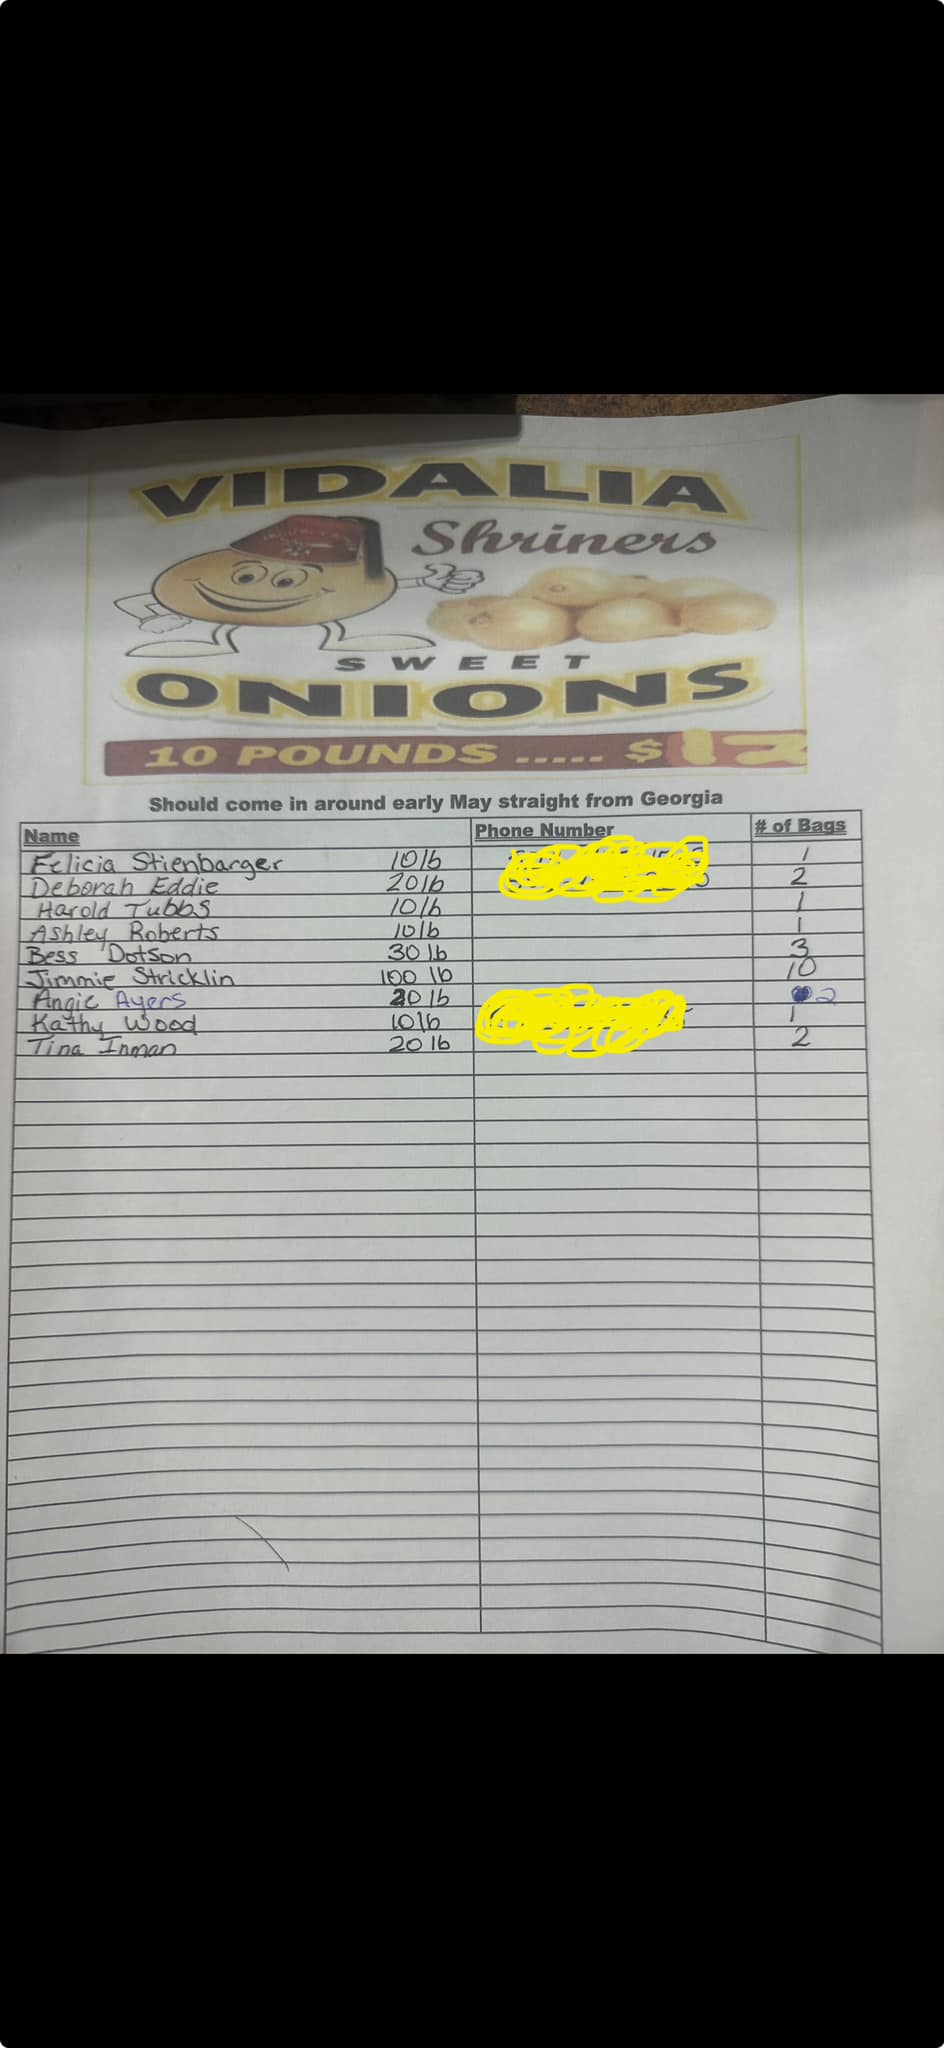 VIDALIA
Shriners
SWEET
ONIONS
10 POUNDS ..... $12
Should come in around early May straight from Georgia
Name Phone Number # of Bags
Felicia Stienbarger 10lb 1
Deborah Eddie 20lb 2
Harold Tubbs 10lb 1
Ashley Roberts 10lb 1
Bess Dotson 30 lb 3
Jimmie Stricklin 100 lb 10
Angie Ayers 20 lb 2
Kathy Wood 10lb 1
Tina Inman 20 lb 2